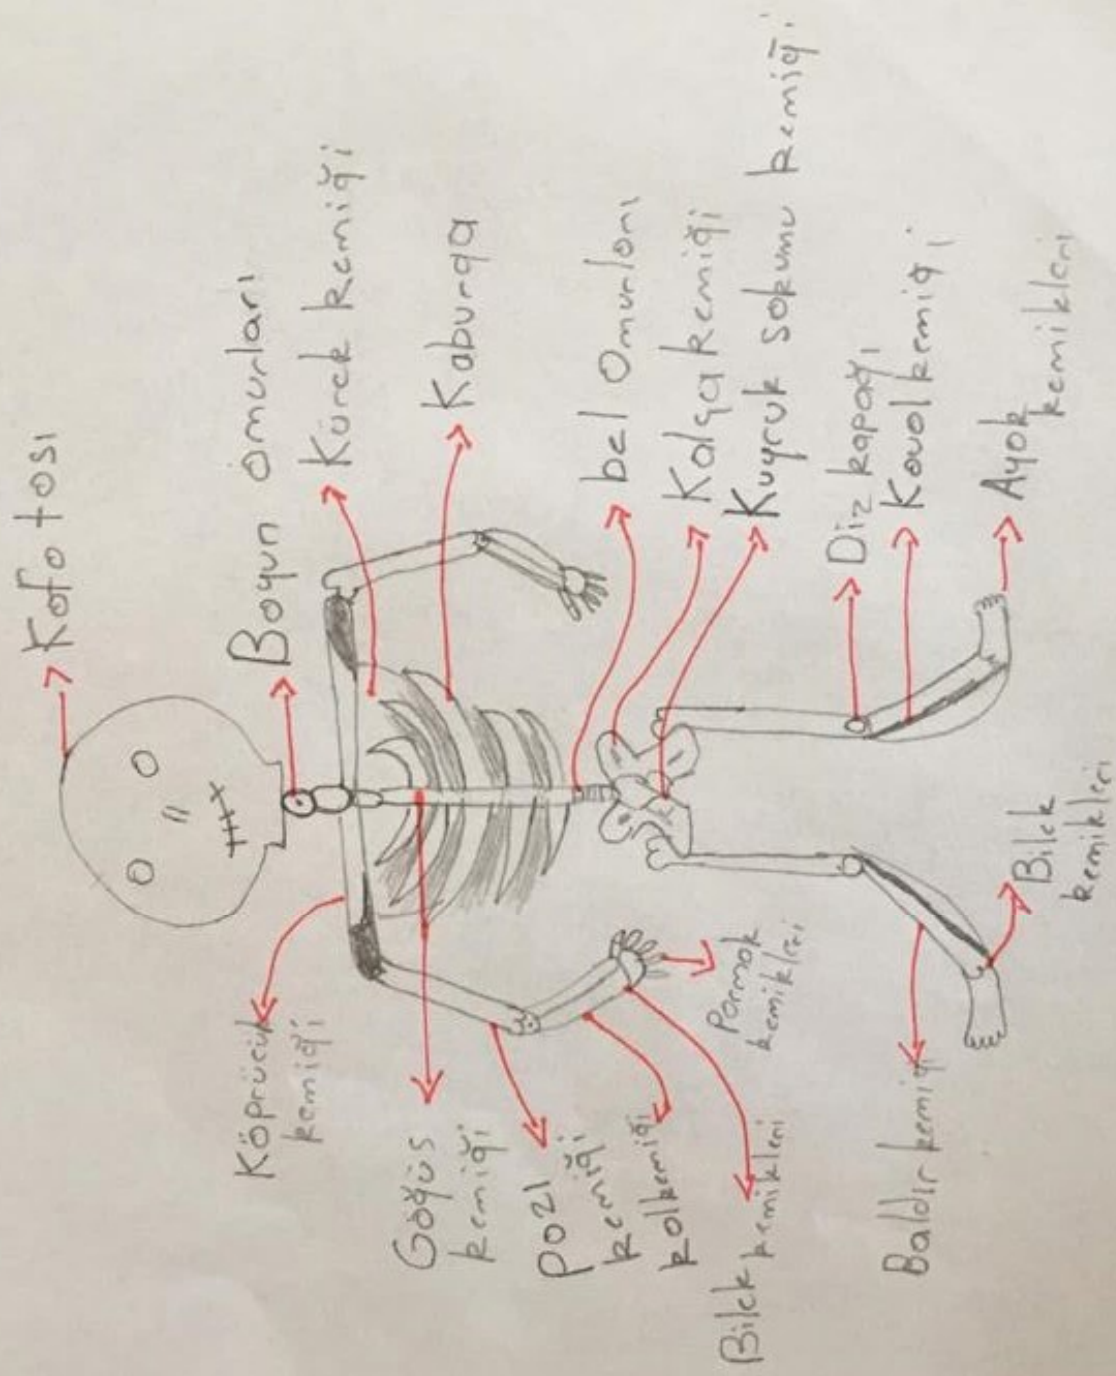 Kafa tası
Boyun Omurları
Kürek kemiği
Kaburga
bel Omurları
Kalça kemiği
Kuyruk sokumu kemiği
Diz kapağı
Kaval kemiği
Ayak
kemikleri
Köprücük
kemiği
Göğüs
kemiği
Pazı
kemiği
kemiği
kol
Bilek kemikleri
Parmak
kemikleri
Baldır kemiği
Bilek
kemikleri